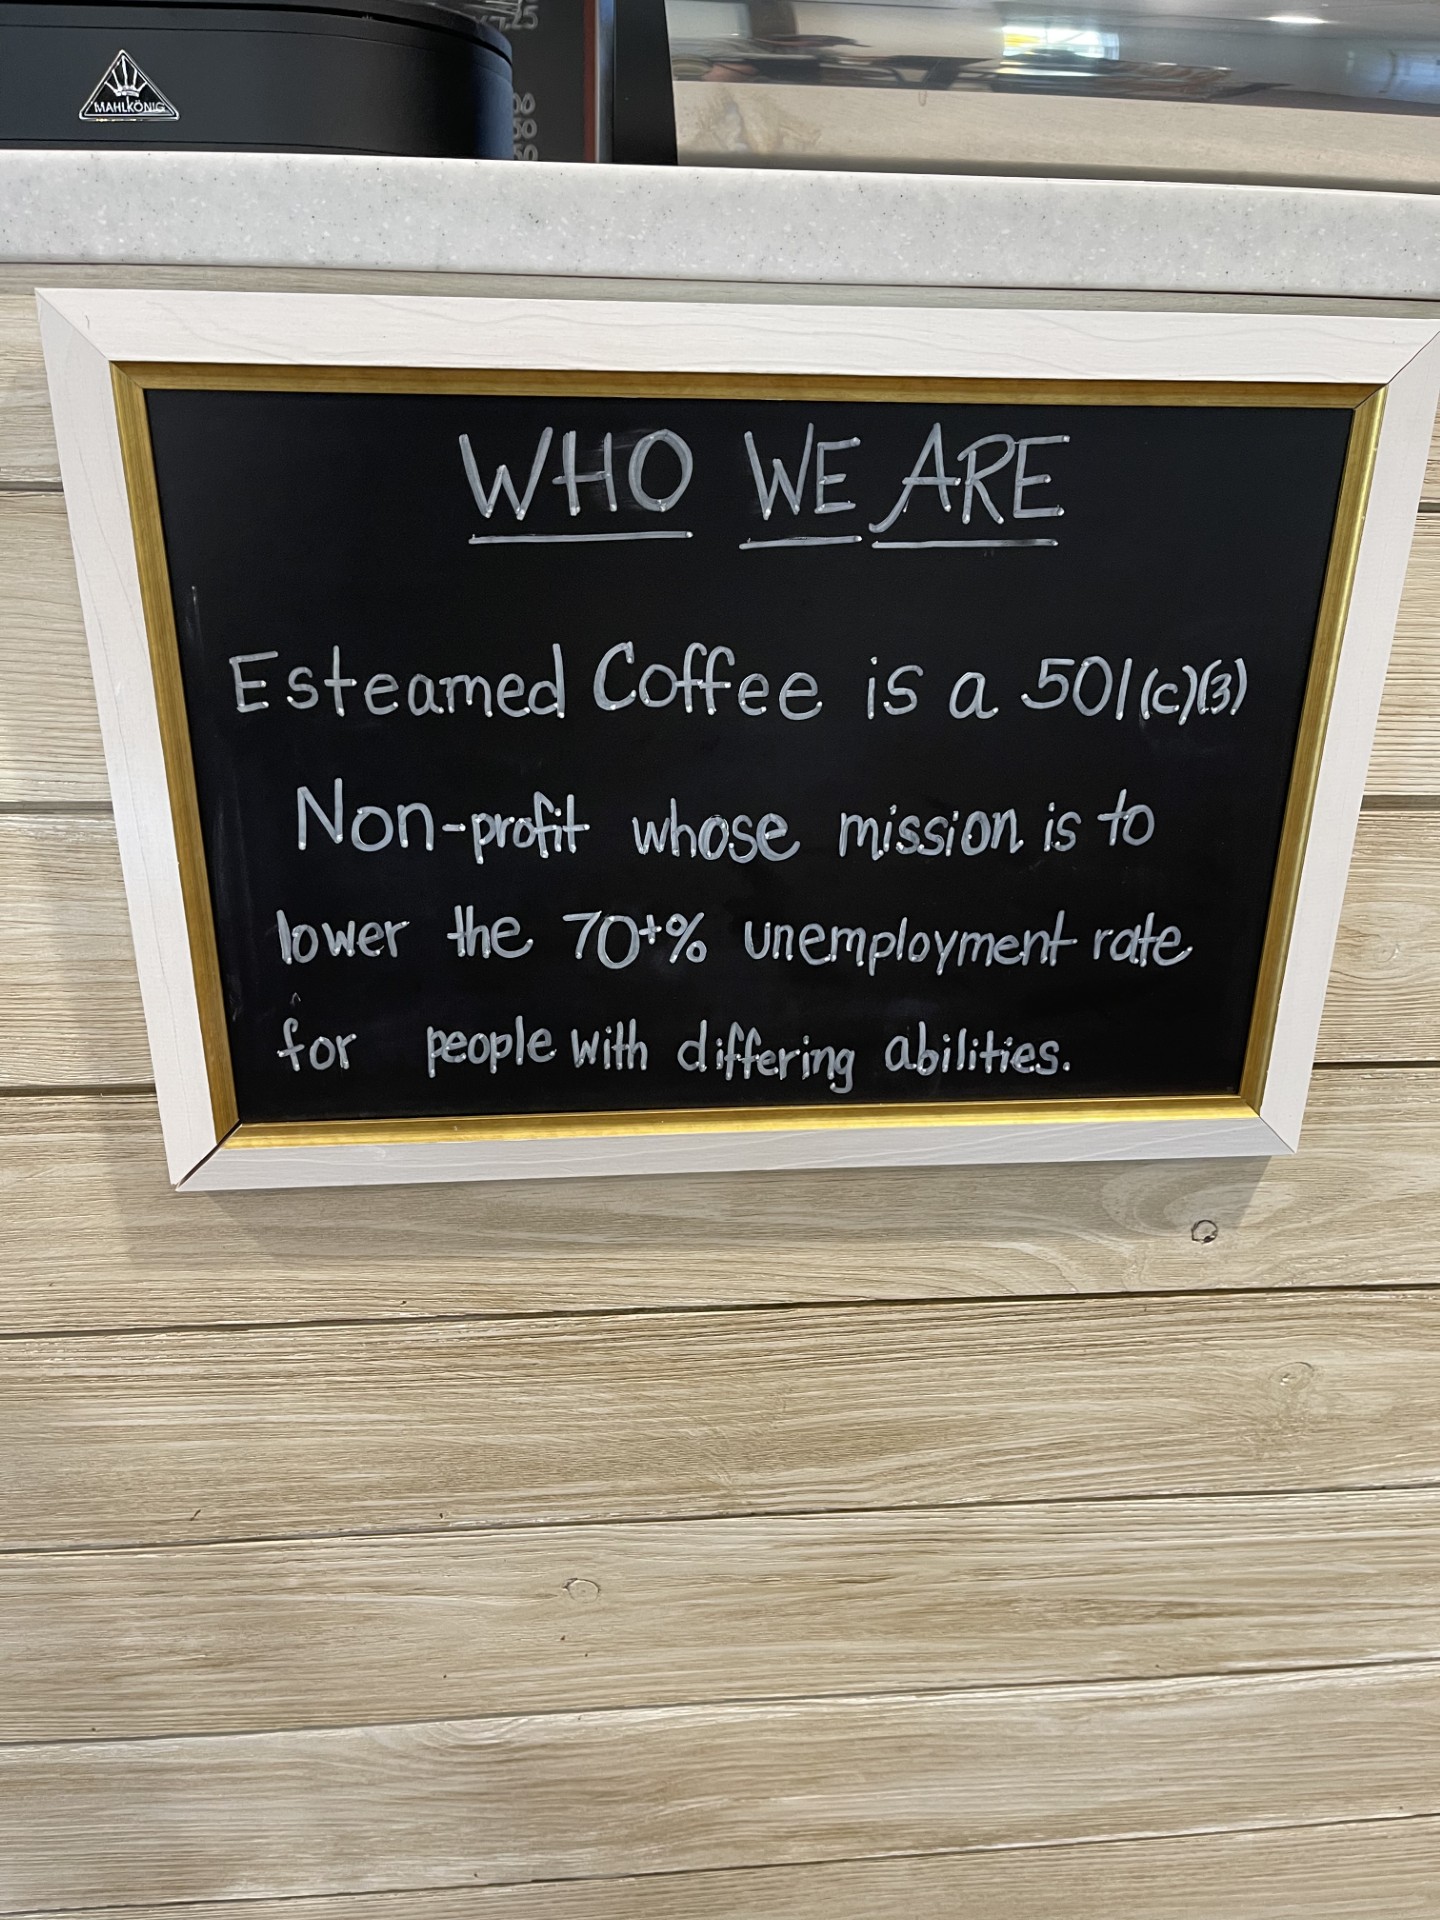 MAHLKÖNIG
WHO WE ARE
Esteamed Coffee is a 501(c)(3)
Non-profit whose mission is to
lower the 70+% unemployment rate
for people with differing abilities.